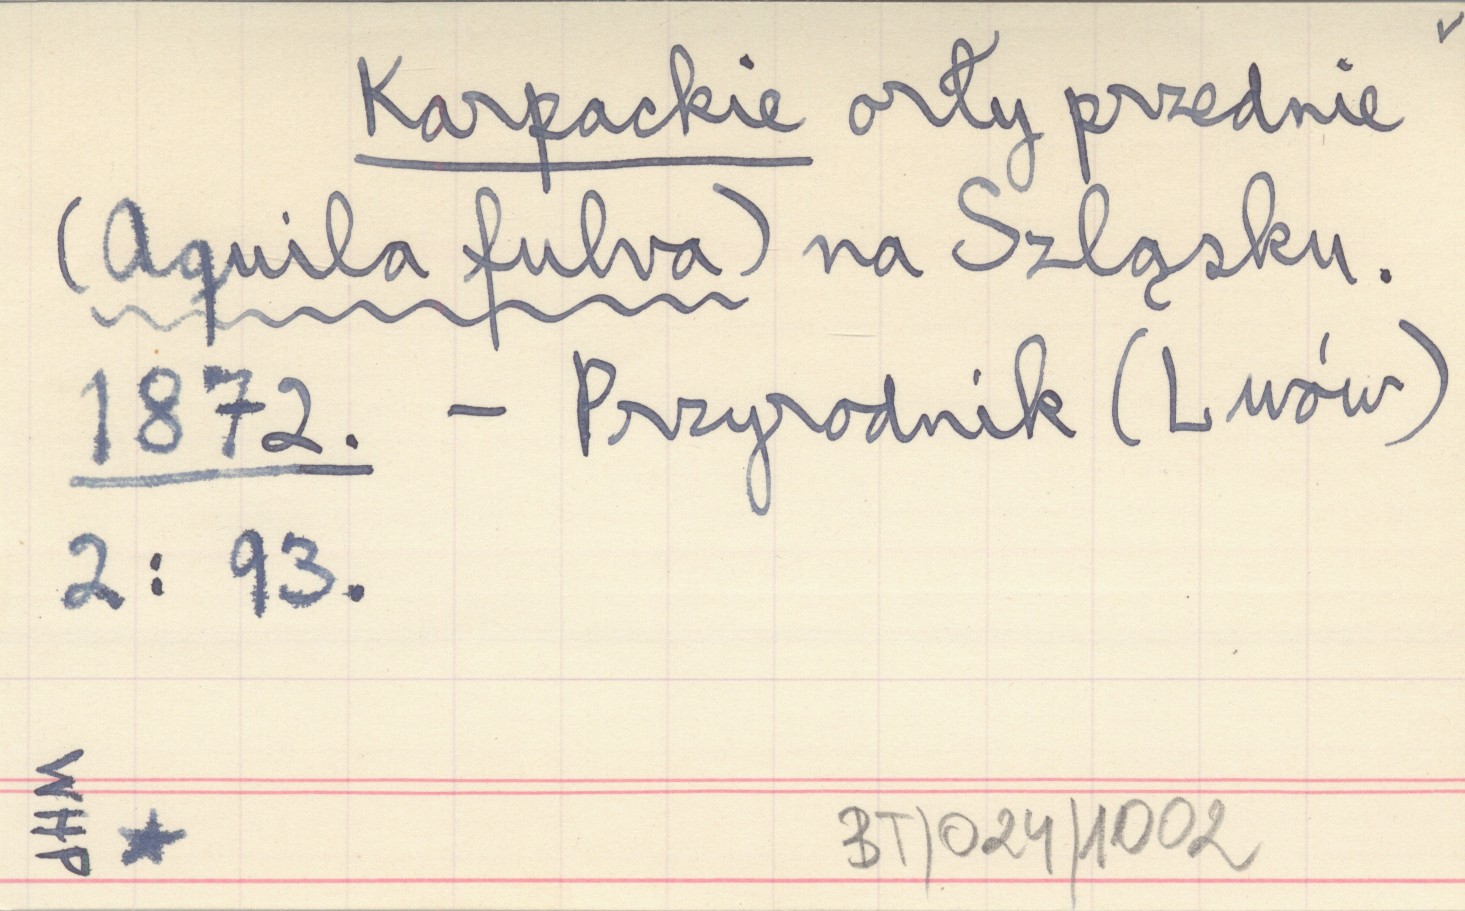 Karpackie orły przednie
(Aquila fulva) na Szląsku.
1872. – Przyrodnik (Lwów)
2: 93.
WHP
BT/024/1002